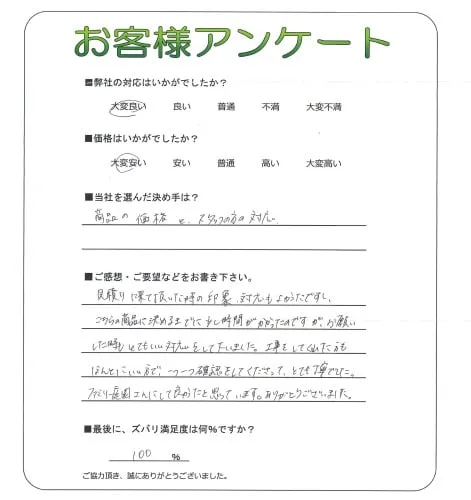 お客様アンケート
■弊社の対応はいかがでしたか？
大変良い 良い 普通 不満 大変不満
■価格はいかがでしたか？
大変安い 安い 普通 高い 大変高い
■当社を選んだ決め手は？
商品の価格と、スタッフの方の対応
■ご感想・ご要望などをお書き下さい。
見積りに来て頂いた時の印象、対応もよかったですし、
こちらの商品に決めるまでに少し時間がかかったのですが、お願い
した時もとてもいい対応をして下さいました。工事をしてくれた方も
ほんとにいい方で、一つ一つ確認をしてくださって、とても丁寧でした。
ファミリー庭園さんにして良かったと思っています。ありがとうございました。
■最後に、ズバリ満足度は何%ですか？
100 %
ご協力頂き、誠にありがとうございました。